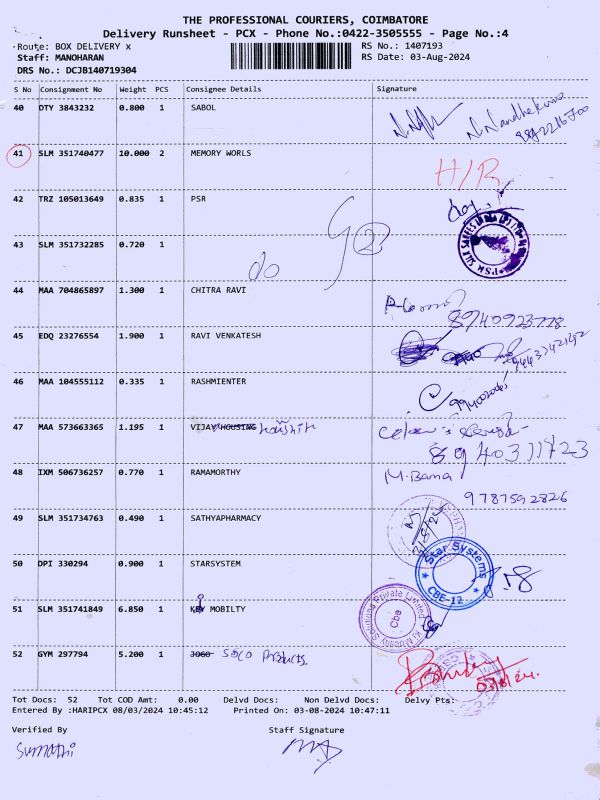 THE PROFESSIONAL COURIERS, COIMBATORE
Delivery Runsheet - PCX - Phone No.:0422-3505555 - Page No.:4
Route: BOX DELIVERY x RS No.: 1407193
Staff: MANOHARAN RS Date: 03-Aug-2024
DRS No.: DCJB140719304
S No Consignment No Weight PCS Consignee Details Signature
40 DTY 3843232 0.800 1 SABOL
41 SLM 351740477 10.000 2 MEMORY WORLS H/R
42 TRZ 105013649 0.835 1 PSR
43 SLM 351732285 0.720 1 do
44 MAA 704865897 1.300 1 CHITRA RAVI
8940923778
45 EDQ 23276554 1.900 1 RAVI VENKATESH
46 MAA 104555112 0.335 1 RASHMIENTER
47 MAA 573663365 1.195 1 VIJAY HOUSING
48 IXM 506736257 0.770 1 RAMAMORTHY M.Bama
9787592826
49 SLM 351734763 0.490 1 SATHYAPHARMACY
50 DPI 330294 0.900 1 STARSYSTEM Star Systems CBE-12
51 SLM 351741849 6.850 1 KI MOBILTY Ki Mobility Solutions Private Limited Cbe
52 GYM 297794 5.200 1 SOCO Products.
Tot Docs: 52 Tot COD Amt: 0.00 Delvd Docs: Non Delvd Docs: Delvy Pts:
Entered By :HARIPCX 08/03/2024 10:45:12 Printed On: 03-08-2024 10:47:11
Verified By Staff Signature
Sumathi